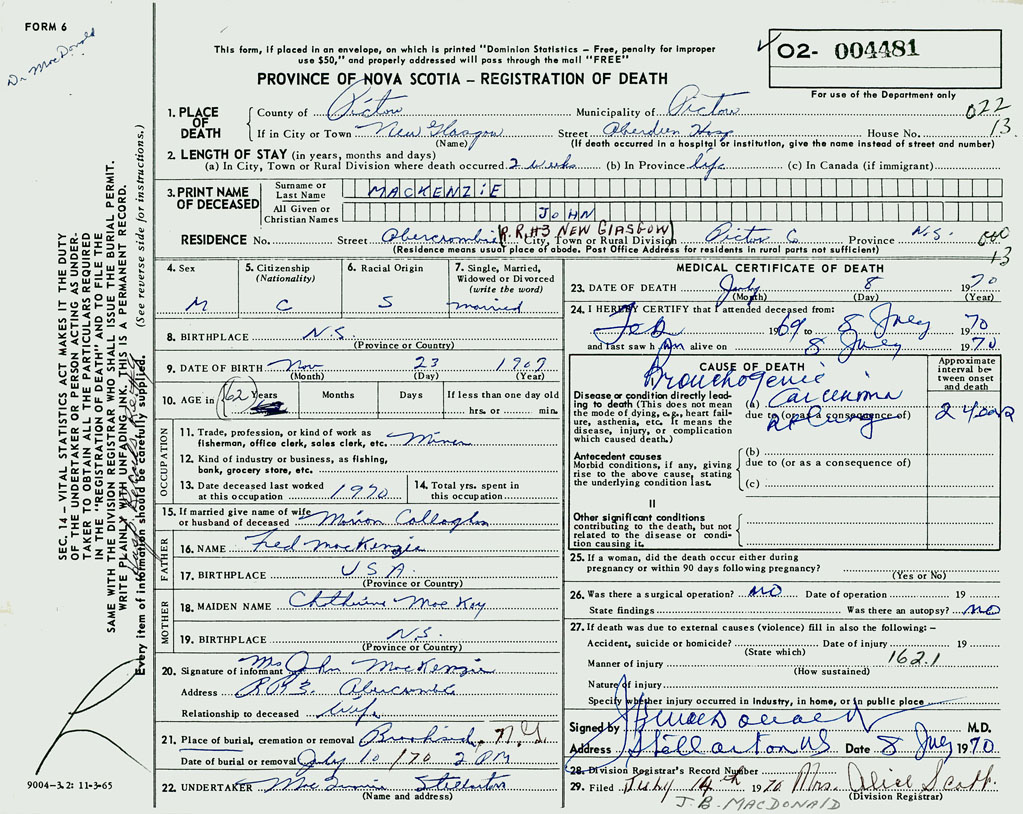 FORM 6
Dr MacDonald
This form, if placed in an envelope, on which is printed "Dominion Statistics – Free, penalty for improper
use $50," and properly addressed will pass through the mail "FREE"
02- 004481
For use of the Department only
PROVINCE OF NOVA SCOTIA – REGISTRATION OF DEATH
022
13
1. PLACE OF DEATH
County of Pictou Municipality of Pictou
If in City or Town New Glasgow Street Aberdeen Hosp House No.
(Name) (If death occurred in a hospital or institution, give the name instead of street and number)
2. LENGTH OF STAY (in years, months and days)
(a) In City, Town or Rural Division where death occurred 2 weeks (b) In Province life (c) In Canada (if immigrant)
3. PRINT NAME OF DECEASED
Surname or Last Name MACKENZIE
All Given or Christian Names JOHN
RESIDENCE No. Street Abercrombie R.R#3 NEW GLASGOW City, Town or Rural Division Pictou Co Province N.S.
(Residence means usual place of abode. Post Office Address for residents in rural parts not sufficient)
13
4. Sex M
5. Citizenship (Nationality) C
6. Racial Origin S
7. Single, Married, Widowed or Divorced (write the word) married
8. BIRTHPLACE N.S.
(Province or Country)
9. DATE OF BIRTH Nov 23 1907
(Month) (Day) (Year)
10. AGE in (62) Years Months Days If less than one day old
hrs. or min.
OCCUPATION
11. Trade, profession, or kind of work as
fisherman, office clerk, sales clerk, etc. Miner
12. Kind of industry or business, as fishing,
bank, grocery store, etc.
13. Date deceased last worked
at this occupation 1970
14. Total yrs. spent in
this occupation
15. If married give name of wife
or husband of deceased Marion Callaghan
FATHER
16. NAME Fred MacKenzie
17. BIRTHPLACE USA
(Province or Country)
MOTHER
18. MAIDEN NAME Chatherine MacKay
19. BIRTHPLACE N.S.
(Province or Country)
20. Signature of informant Ms John MacKenzie
Address RR3. Abercrombie
Relationship to deceased wife
21. Place of burial, cremation or removal
Date of burial or removal July 10/70 2 PM
22. UNDERTAKER Stellarton
(Name and address)
MEDICAL CERTIFICATE OF DEATH
23. DATE OF DEATH July 8 1970
(Month) (Day) (Year)
24. I HEREBY CERTIFY that I attended deceased from:
Feb 1969 to 8 July 1970
and last saw him alive on 8 July 1970
CAUSE OF DEATH
Approximate interval between onset and death
Bronchogenic
Disease or condition directly leading
to death (This does not mean
the mode of dying, e.g., heart failure,
asthenia, etc. It means the
disease, injury, or complication
which caused death.)
(a) Carcinoma
due to (or as a consequence of)
2 years
Antecedent causes
Morbid conditions, if any, giving
rise to the above cause, stating
the underlying condition last.
(b)
due to (or as a consequence of)
(c)
II
Other significant conditions
contributing to the death, but not
related to the disease or condition
causing it.
25. If a woman, did the death occur either during
pregnancy or within 90 days following pregnancy?
(Yes or No)
26. Was there a surgical operation? NO Date of operation 19
State findings Was there an autopsy? NO
27. If death was due to external causes (violence) fill in also the following: –
Accident, suicide or homicide? Date of injury 19
(State which) 162.1
Manner of injury
(How sustained)
Nature of injury
Specify whether injury occurred in Industry, in home, or in public place
Signed by M.D.
Address Stellarton NS Date 8 July 1970
28. Division Registrar's Record Number
29. Filed 14th 1970 Mrs. Alice Scott
J. B. MACDONALD (Division Registrar)
SEC. 14 – VITAL STATISTICS ACT MAKES IT THE DUTY
OF THE UNDERTAKER OR PERSON ACTING AS UNDERTAKER
TO OBTAIN ALL THE PARTICULARS REQUIRED
IN THE "REGISTRATION OF DEATH" AND TO FILE THE
SAME WITH THE DIVISION REGISTRAR WHO SHALL ISSUE THE BURIAL PERMIT.
WRITE PLAINLY WITH UNFADING INK. THIS IS A PERMANENT RECORD.
Every item of information should be carefully supplied. (See reverse side for instructions.)
9004-3.2: 11-3-65